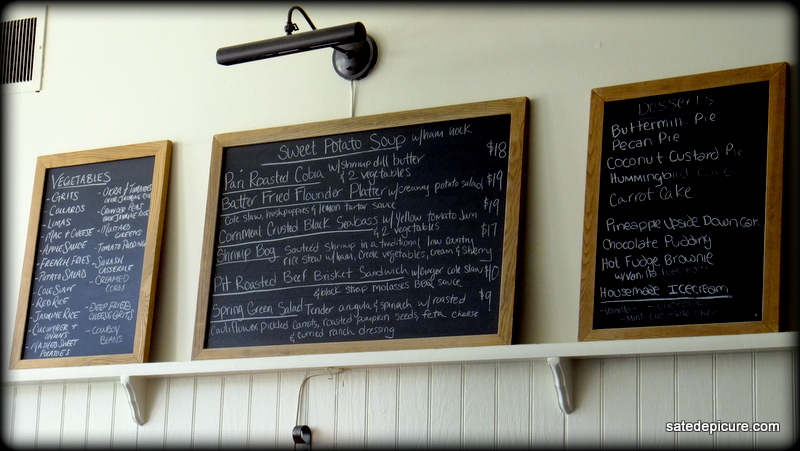 VEGETABLES
-GRITS
-COLLARDS
-LIMAS
-MAC & CHEESE
-APPLE SAUCE
-FRENCH FRIES
-POTATO SALAD
-COLE SLAW
-RED RICE
-JASMINE RICE
-CUCUMBER &
ONIONS
-MASHED SWEET
POTATOES
-OKRA & TOMATOES
OVER JASMINE RICE
OVER JASMINE RICE
-MUSTARD
GREENS
-TOMATO PUDDING
-SQUASH
CASSEROLE
-CREAMED
CORN
-DEEP FRIED
CHEESE GRITS
-COWBOY
BEANS
Sweet Potato Soup w/ham hock
Pan Roasted Cobia w/shrimp dill butter $18
& 2 vegetables
Batter Fried Flounder Platter w/creamy potato salad, $19
cole slaw, hushpuppies & lemon tartar sauce
Cornmeal Crusted Black Seabass w/ yellow tomato jam $19
& 2 vegetables
Shrimp Bog Sauteed shrimp in a traditional low country $17
rice stew w/ham, creole vegetables, cream & sherry
Pit Roasted Beef Brisket Sandwich w/ginger cole slaw $10
& black strap molasses BBQ sauce
Spring Green Salad Tender arugula & spinach w/ roasted $9
cauliflower, pickled carrots, roasted pumpkin seeds, feta cheese
& curried ranch dressing
Desserts
Buttermilk Pie
Pecan Pie
Coconut Custard Pie
Hummingbird
Carrot Cake
Pineapple Upside Down Cake
Chocolate Pudding
Hot Fudge Brownie
w/vanilla icecream
Housemade Icecream
-Vanilla
satedepicure.com